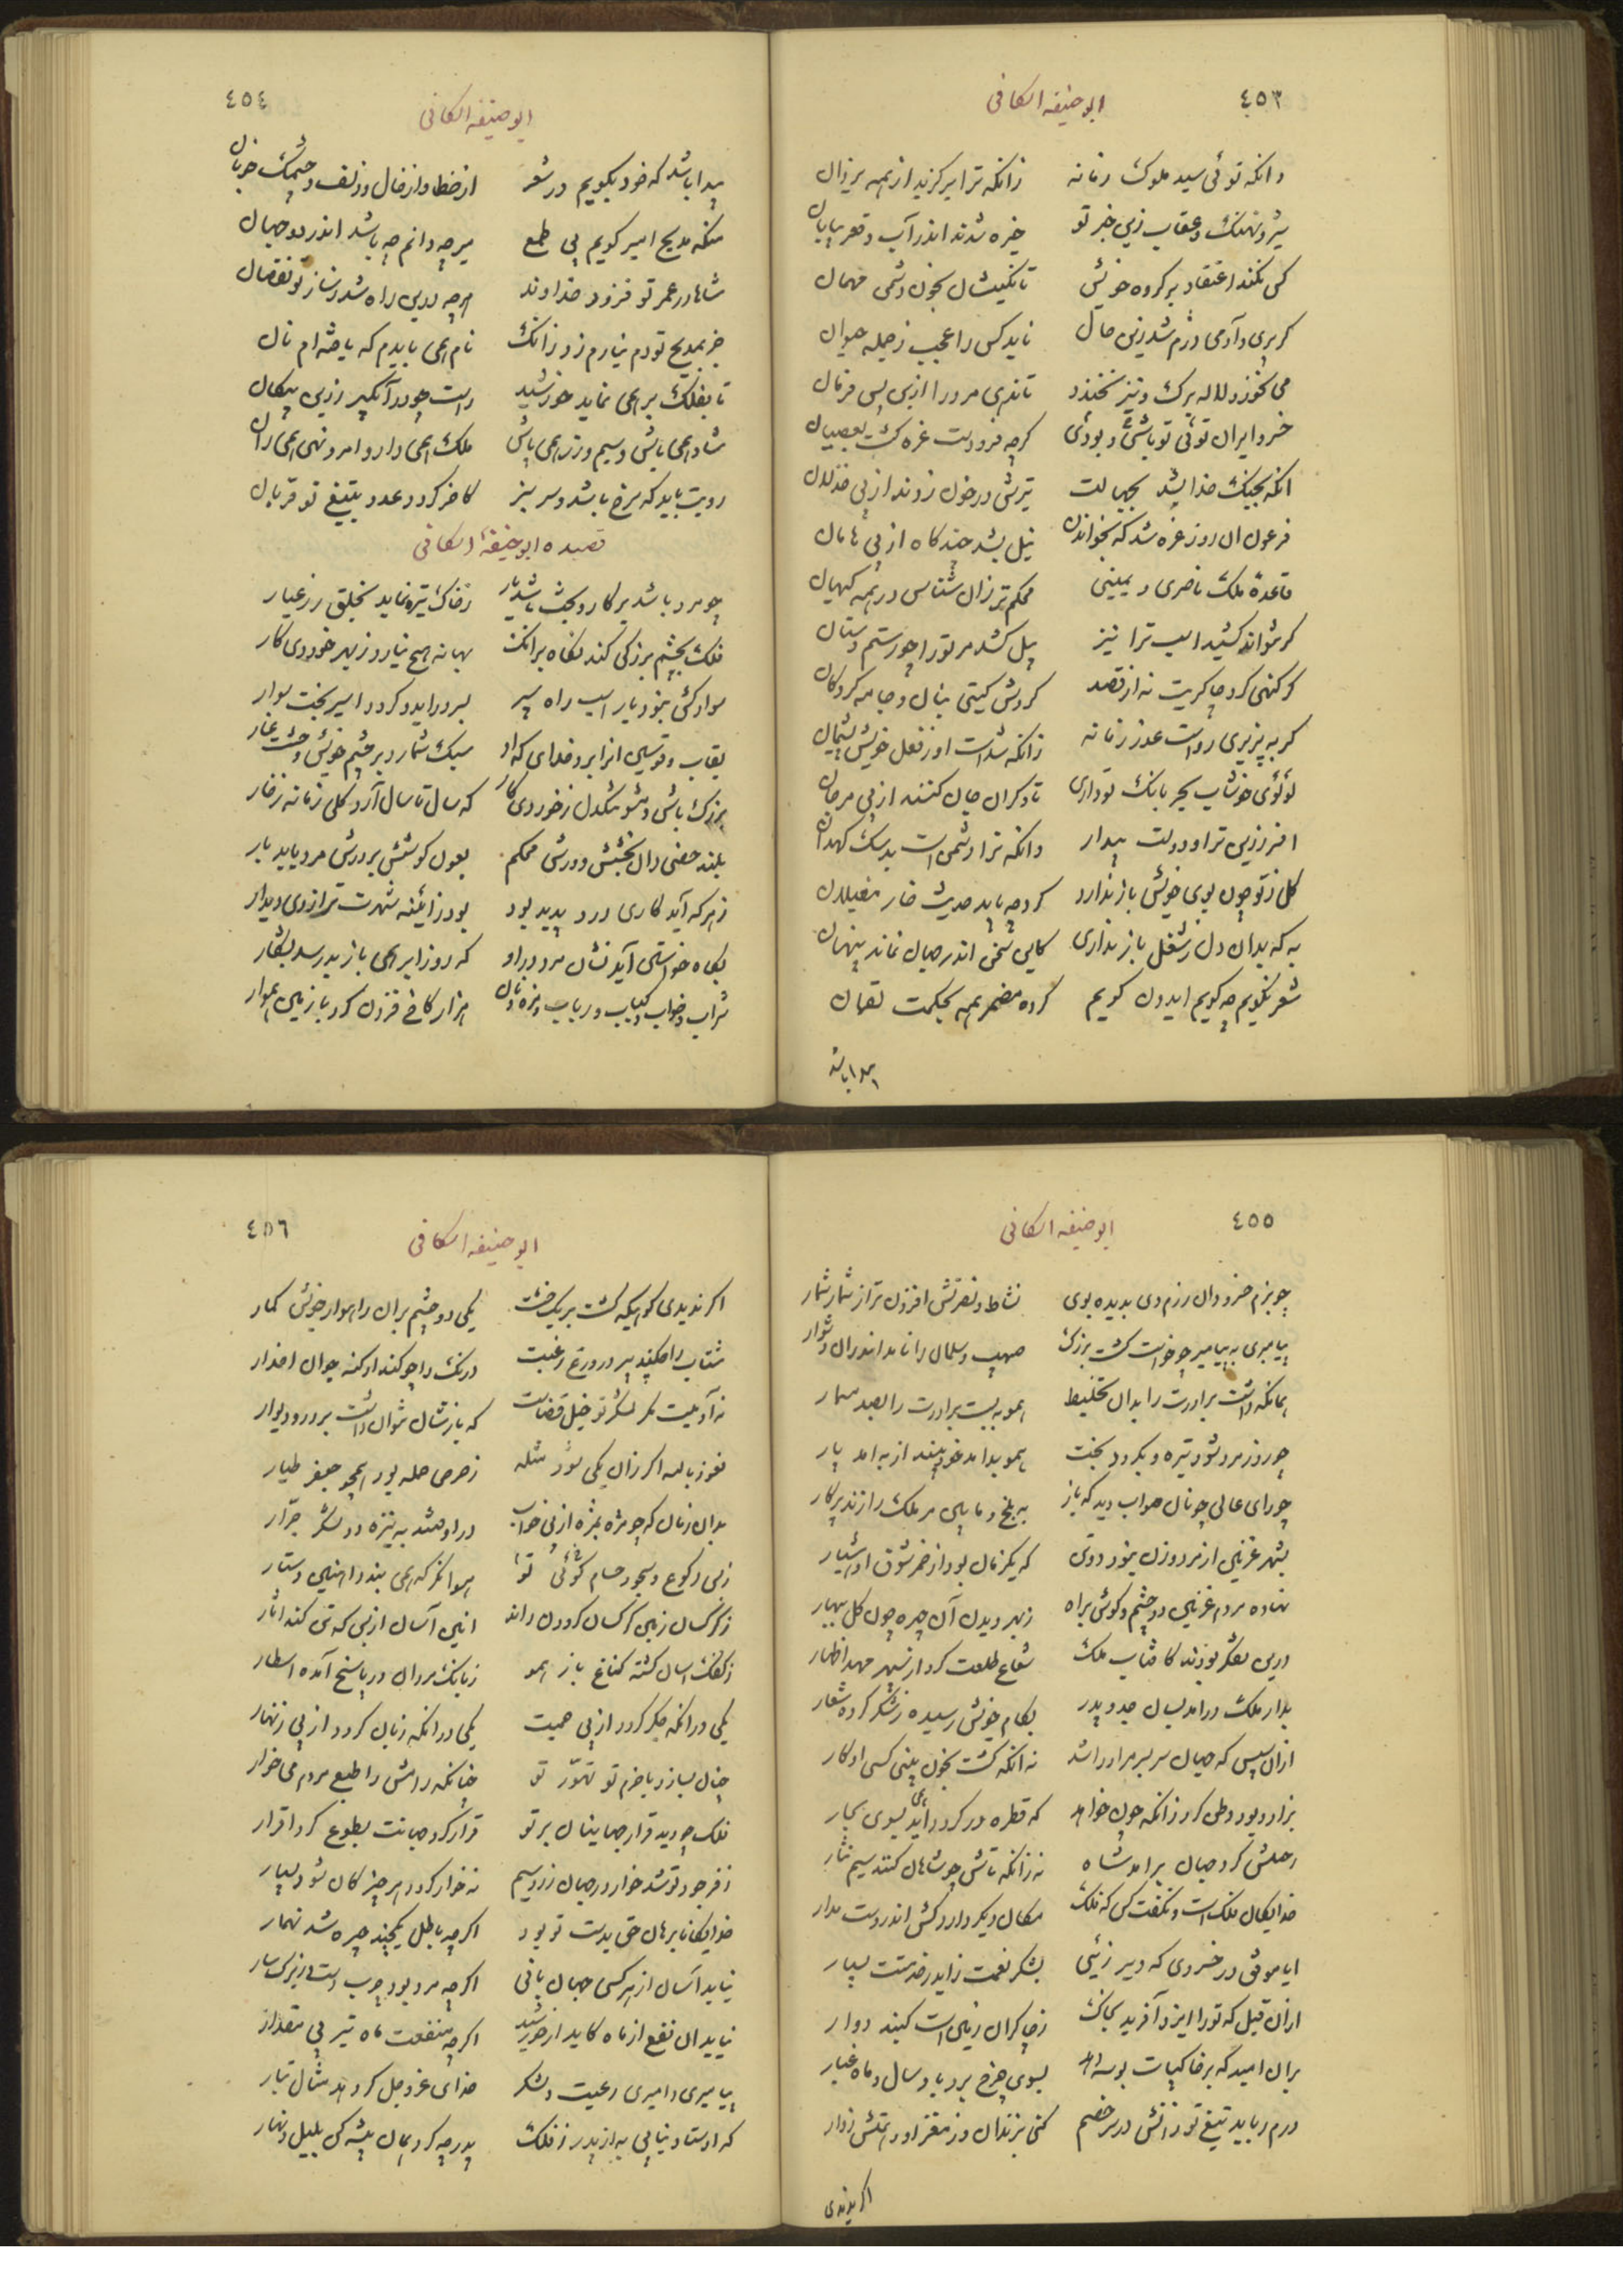 ٤٥٣
ابو حنیفه اسکافی
وانکه توئی سید ملوک زمانه زانکه ترا برگزید از همه یزدان
شیر و نهنک و عقاب زین خبر تو خیره شدند اندر آب و قعر بیابان
کس نکند اعتقاد بر کروه خویش تا نکنیشان بخون دشمن مهمان
کر پری و آدمی دژم شد زین حال ناید کس را عجب ز جمله حیوان
می نخورد لاله برک و نیز نخندد تا ندهی مرو را ازین پس فرمان
خسرو ایران توئی تو باشی و بودی کرچه فرودست غره کشت بعصیان
انکه بجنک خدا بشد بجهالت تیرش در خون زدند از پی خذلان
فرعون ان روز غره شد که بخواندن نیل بشد چند کاه از پی هامان
قاعده ملک ناصری و یمینی محکم تر زان شناس در همه کیهان
کر نتواند کشید اسب ترا نیز پیل کشد مر تو را چو رستم دستان
کر کنهی کرد چاکریت نه از قصد کردش کیتی بنان و جامه کروکان
کر بپذیری رواست عذر زمانه زانکه شدست او ز فعل خویش پشیمان
لؤلؤی خوشاب بحر بانک تو داری تا دکران جان کنند از پی مرجان
افسر زرین ترا و دولت بیدار وانکه ترا دشمن است بدسک کهدان
کل ز تو چون بوی خویش باز ندارد کرد چه باید حدیث خار مغیلان
به که بدان دل ز شغل باز نداری کاین سخن اندر جهان نماند پنهان
شعر نکویم چه کویم ایدون کویم کرده مضمر همه بحکمت لقمان
٤٥٤
ابو حنیفه اسکافی
پیدا باشد که خود نکویم در شعر از خط و از خال و زلف و چشمک خوبان
منکه مدیح امیر کویم بی طمع میر چه دانم چه باشد اندر دو جهان
شاها در عمر تو فزود خداوند هرچه درین راه شد ز ساز تو نقصان
جز بمدیح تو دم نیارم زد زانک نام همی بایدم که یافته ام نان
تا بفلک بر همی نماید خورشید راست چو در آبکیر زرین پنکان
شاد همی باش و سیم و زر همی پاش ملک همی دار و امر و نهی همی ران
رویت باید که سرخ باشد و سر سبز کاخر کردد عدو بتیغ تو قربان
قصیده ابو حنیفهٔ اسکافی
چو مرد باشد بر کار و بخت باشد یار ز خاک تیره نماید بخلق زر عیار
فلک بچشم بزرکی کند نکاه برانک بهانه هیچ نیارد ز بهر خوردی کار
سوار کش نبود یار اسب راه سپر بسر دراید و کردد اسیر بخت سوار
بقاب قوسین انرا برد خدای که او سبک شمارد بر چشم خویش وحشت غار
بزرک باش و مشو تنکدل ز خوردی کار که سال تا سال آرد کلی زمانه ز خار
بلند حصنی دان بخشش و درش محکم بعون کوشش بر درش مرد یابد بار
ز هر که آید کاری درو پدید بود بود ز آئینه شهرت ترا ز روی دیدار
بکاه خواستن آید نشان مرد درو که روز ابر همی باز به رسد بشکار
شراب و خواب و کباب و رباب و تره و نان هزار کاخ فزون کرد با زمین هموار
٤٥٥
ابو حنیفه اسکافی
چو بزم خسرو و ان رزم وی بدیده بوی نشاط و نصرتش افزون تر از شمار شمار
پیامبری به پیامبر چو خواست کشت بزرک صهیب و سلمان را نامد اندران دشوار
همانکه داشت برادرت را بدان تخلیط همو به بست برادرت را بصد مسمار
چو روز مرد شود تیره و بکردد بخت همو بد امد خود بیند از به امد یار
چو رای عالی چونان صواب دید که باز به بلخ و مایین مر ملک را زند پرکار
بشهر غزنین از مرد و زن نبود دوتن که یک زمان بود از خمر شوق او هشیار
نهاده مردم غزنین دو چشم و کوش براه ز بهر دیدن آن چهره چون کل ببهار
درین تفکر بودند کافتاب ملک شعاع طلعت کرد از سپهر مهد اظهار
بدار ملک درامد بسان جد و پدر بکام خویش رسیده ز شکر کرده شعار
ازان سپس که جهان سر بسر مر او را شد نه انکه کشت بخون بینی کسی او کار
بزاد و بود وطن کرد زانکه چون خواهد که قطره در کردد آید همی بسوی بحار
ز حلش کرد جهان بر امد شاه نه زانکه تاش چو شاهان کنند سیم نثار
خدایکان ملک است و نکفت کس که فلک مکان دیکر دارد کش اندروست مدار
ایا موفق در خسروی که دیر زئی بشکر نعمت زاید ز خدمتت بسیار
ازان قبل که تو را ایزد آفرید بخاک ز چاکران زمین است کنبد دوار
بران امید که بر خاک پات بوسه دهد بسوی چرخ برد باد سال و ماه غبار
درم رباید تیغ تو زانش در سر خصم کنی بزندان وز مغز او دهیش زوار
٤٥٦
ابو حنیفه اسکافی
اکر ندیدی کوهی که کشت بر یک خشت یکی دو چشم بران راهوار خویش کمار
شتاب را چو کند پیر در ورع رغبت درنک را چو کند او کنه جوان اخدار
نه آدمیست مکر لشکر تو خیل قضاست که بازشان نتوان داشت بر در و دیوار
نعوذ بالله اکر زان یکی شود مثله ز حرص حمله بود همچو جعفر طیار
بدان زمان که چو مژه بمژه از پی خواب دراوفتند به نیزه دو لشکر جرار
ز بس رکوع و سجود حسام کوئی تو هوا مکر که همی بندد اهنین دستار
ز کرکسان زمین کرکسان کردون راند انین آسان از بس که تن کند ایثار
ز کفک اسبان کشته کناغ باز هوا ز بانک مردان در پاسخ آمده اسطار
یکی درانکه جکر کردد از پی حمیت یکی درانکه زبان کردد از پی زنهار
چنان بسازد با حزم تو تهور تو چنانکه رامش را طبع مردم می خوار
فلک چو دید قرار جهانیان بر تو قرار کرد جهانت بطوع کرد اقرار
ز فر جود تو شد خوار در جهان زر و سیم نه خوار کردد هر چیز کان شود بسیار
خدایکانا برهان حق بدست تو بود اکرچه باطل یکچند چیره شد نهمار
نیاید آسان از هر کسی جهان بانی اکرچه مرد بود چرب دست و زیرک سار
نیاید ان نفع از ماه کاید از خورشید اکرچه منفعت ماه نیز بی مقدار
پیامبری و امیری رعیت و لشکر خدای عز و جل کر دهد مثال تبار
که اوستاد نیابی به از پدر ز فلک پدر چه کرد همان پیشه کن بلیل و نهار